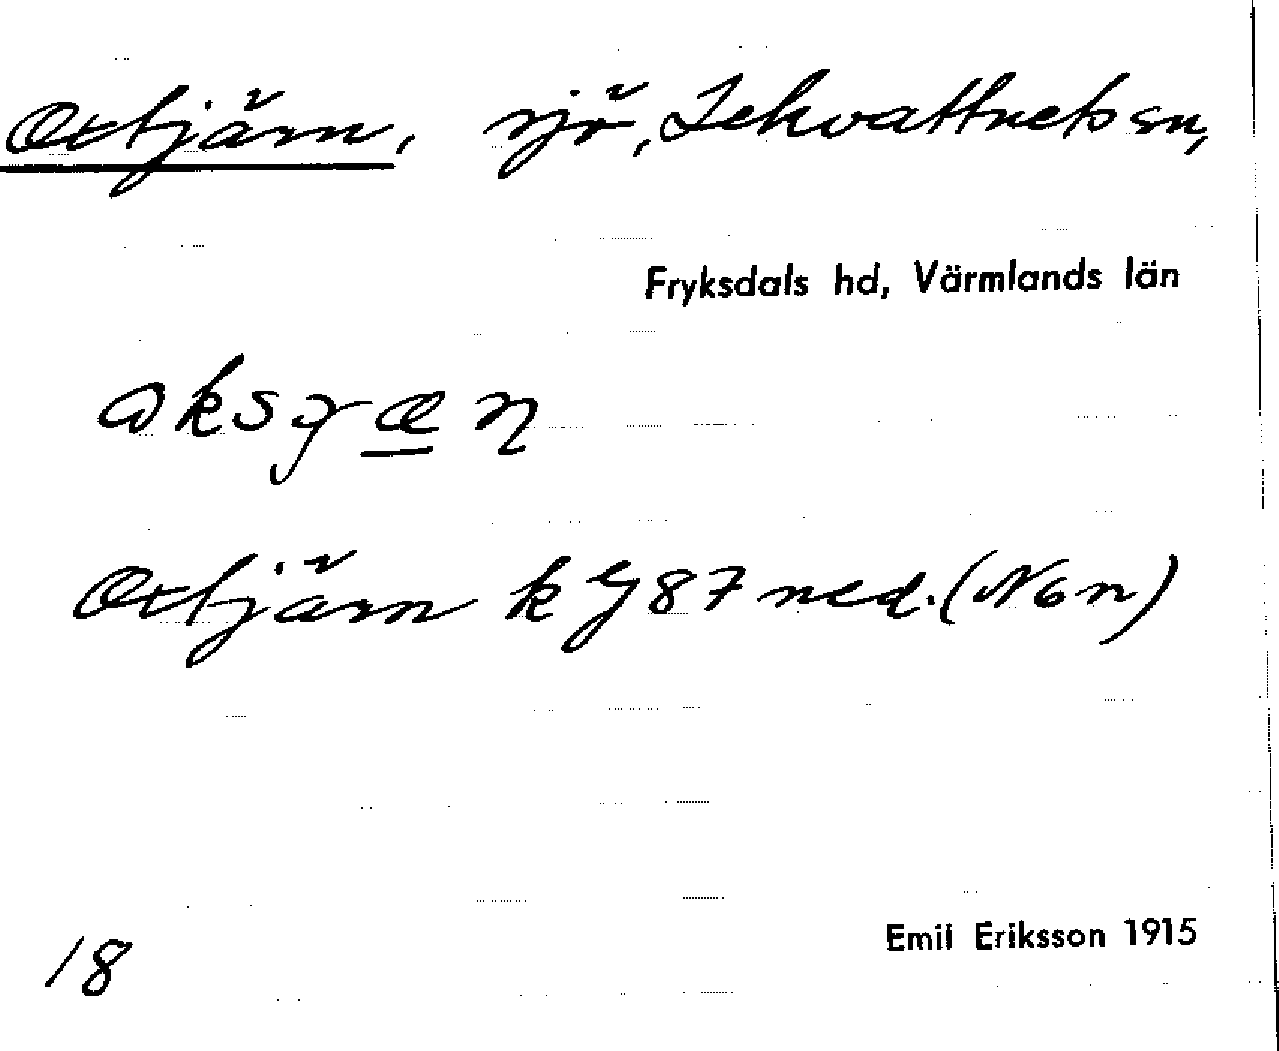 Oxtjärn, sjö, Lekvattnets sn,
Fryksdals hd, Värmlands län
Oxtjärn k bl 87 ned. (Non)
18
Emil Eriksson 1915